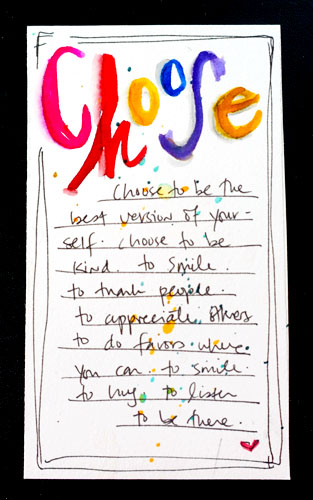 Choose
Choose to be the
best version of your-
self. Choose to be
kind. to smile.
to thank people.
to appreciate others
to do favors when
you can. to smile.
to hug. to listen
to be there.